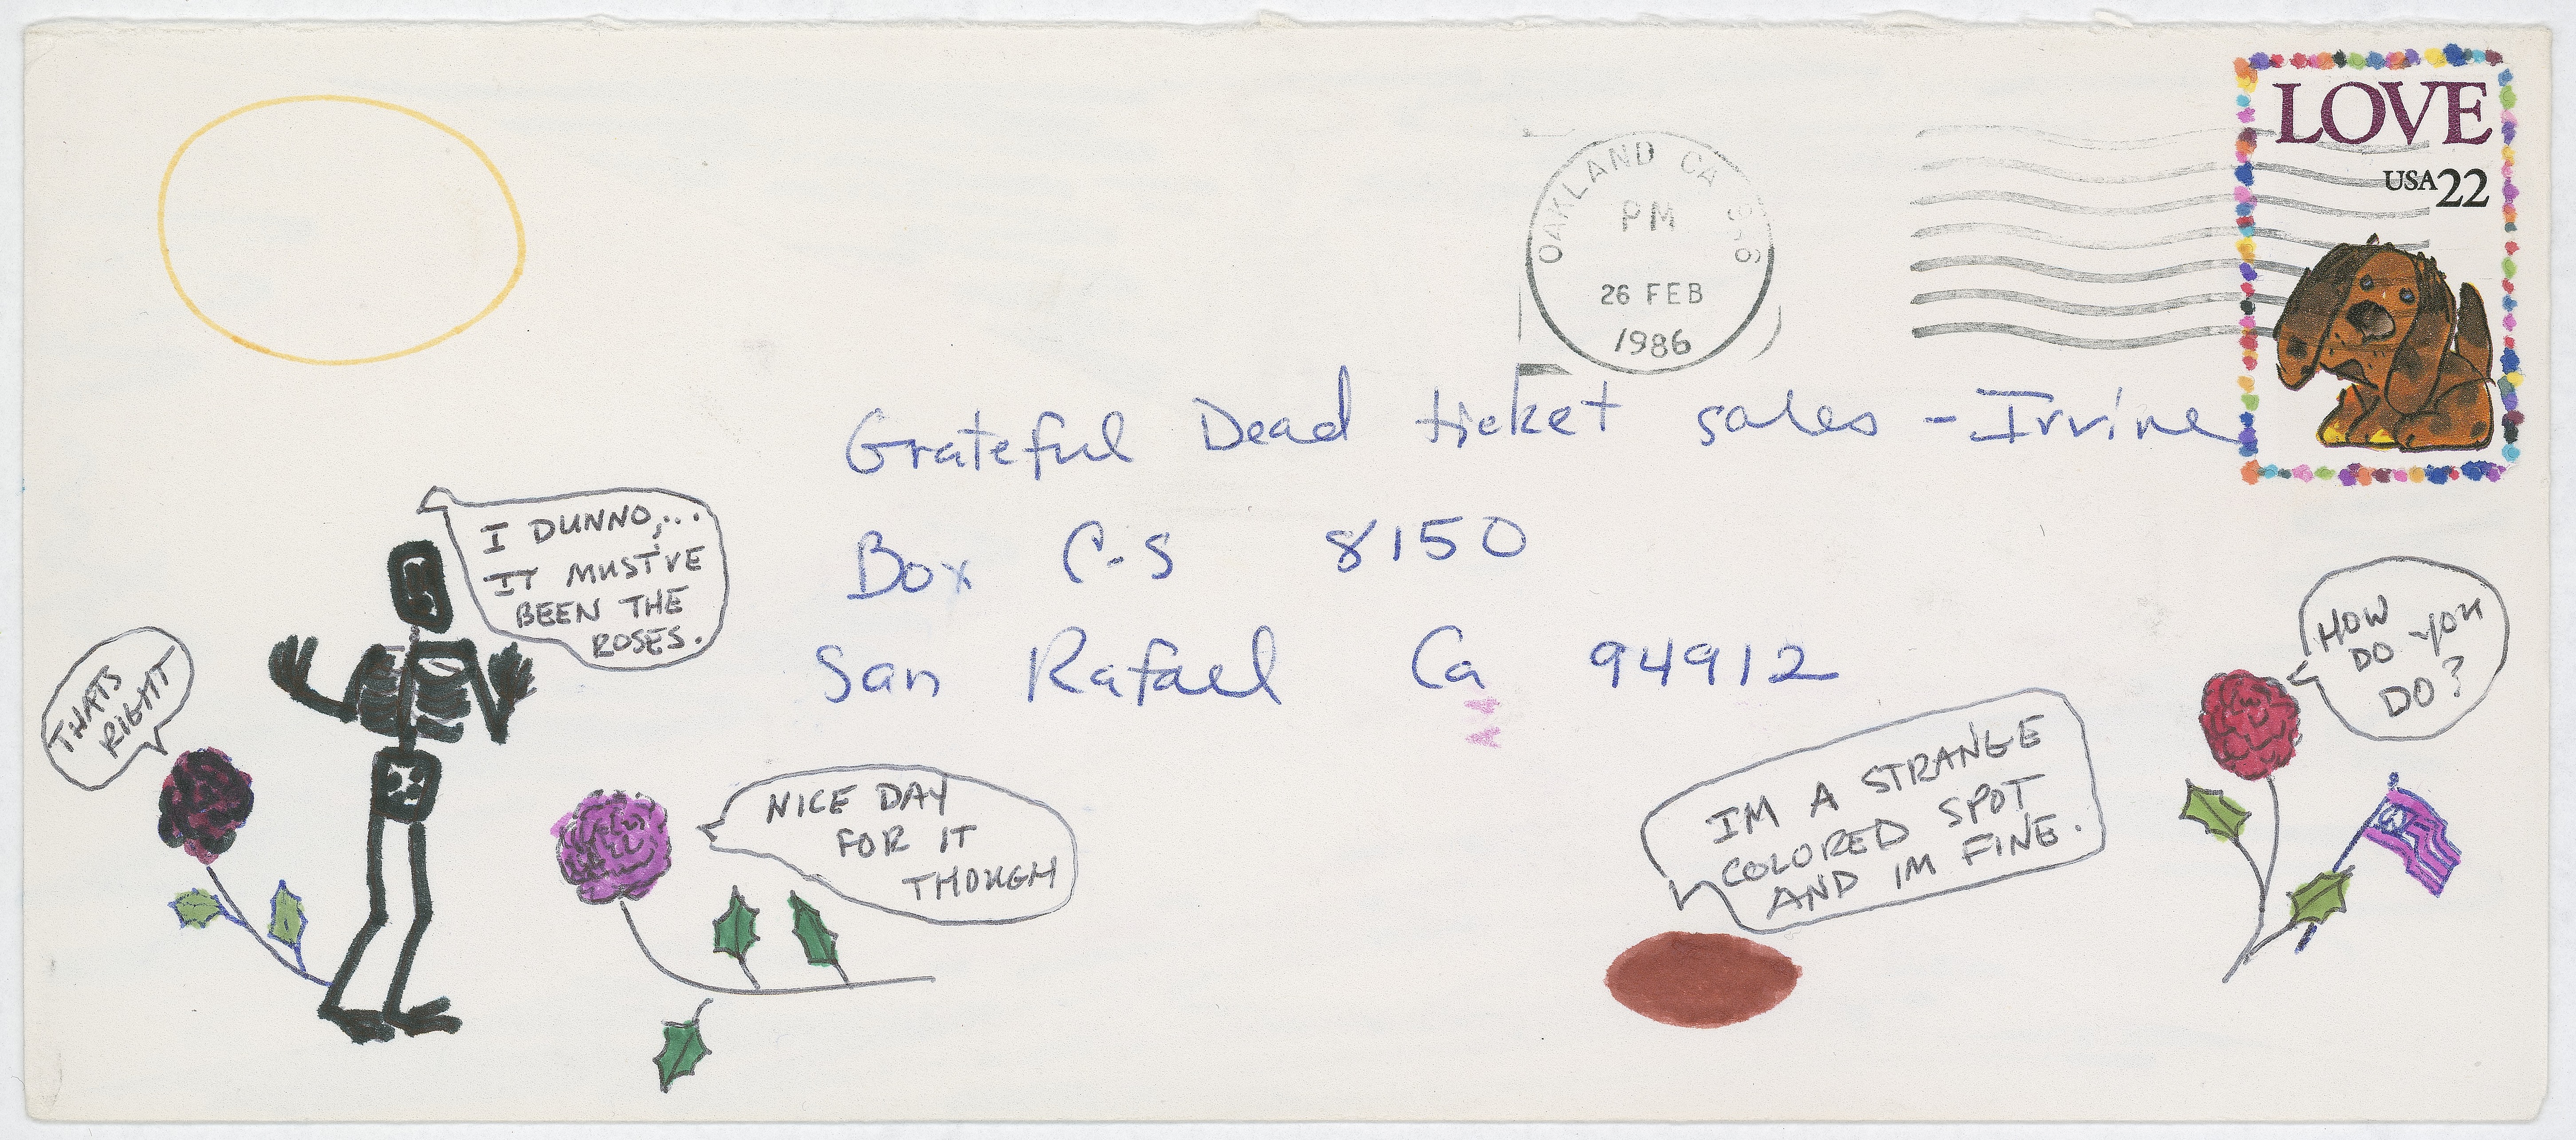 LOVE
USA 22
OAKLAND CA
PM
26 FEB
1986
Grateful Dead ticket sales - Irvine
Box C-S 8150
San Rafael Ca 94912
I DUNNO,...
IT MUST'VE
BEEN THE
ROSES.
THATS
RIGHT
NICE DAY
FOR IT
THOUGH
IM A STRANGE
COLORED SPOT
AND IM FINE.
HOW
DO YOU
DO?